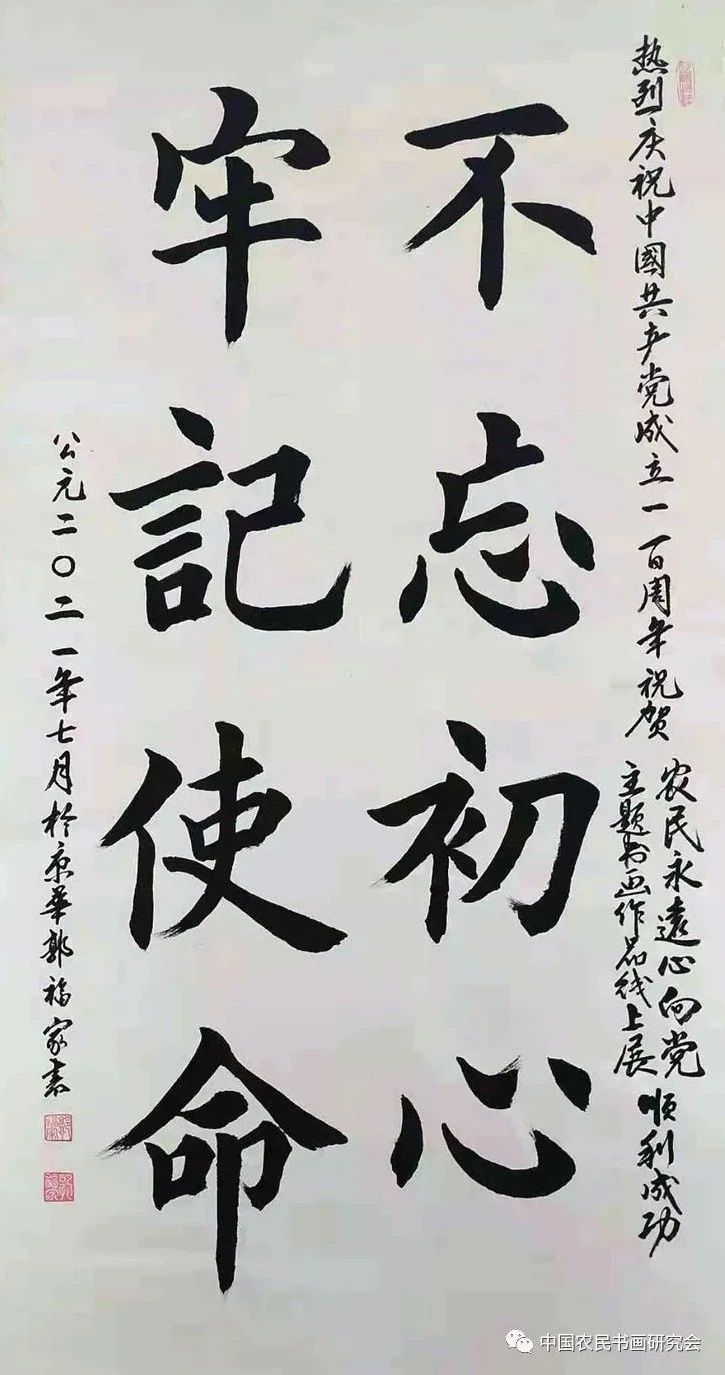 热烈庆祝中國共产党成立一百周年祝贺
农民永遠心向党
主题书画作品线上展
顺利成功
不忘初心
牢記使命
公元二〇二一年七月於京華郭福家书
中国农民书画研究会